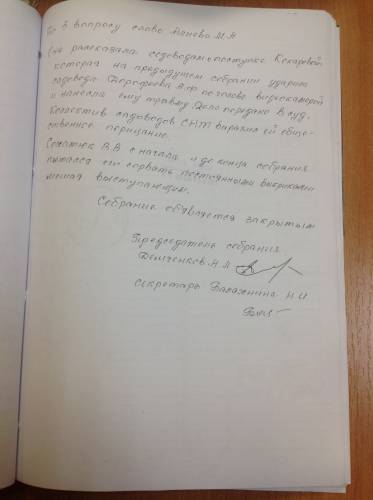 По 3 вопросу слово
рассказала садоводам о поступке
которая на предыдущем собрании ударила
садовода Дорофеева по голове видеокамерой
и нанесла ему травму. Дело передано в суд.
Коллектив садоводов СНТ выразил ей обще-
ственное порицание.
В.В с начала и до конца собрания
пытался его сорвать постоянными выкриками
мешая выступающим.
Собрание объявляется закрытым
Председатель собрания
Демченков
секретарь Балахнина Н.И.